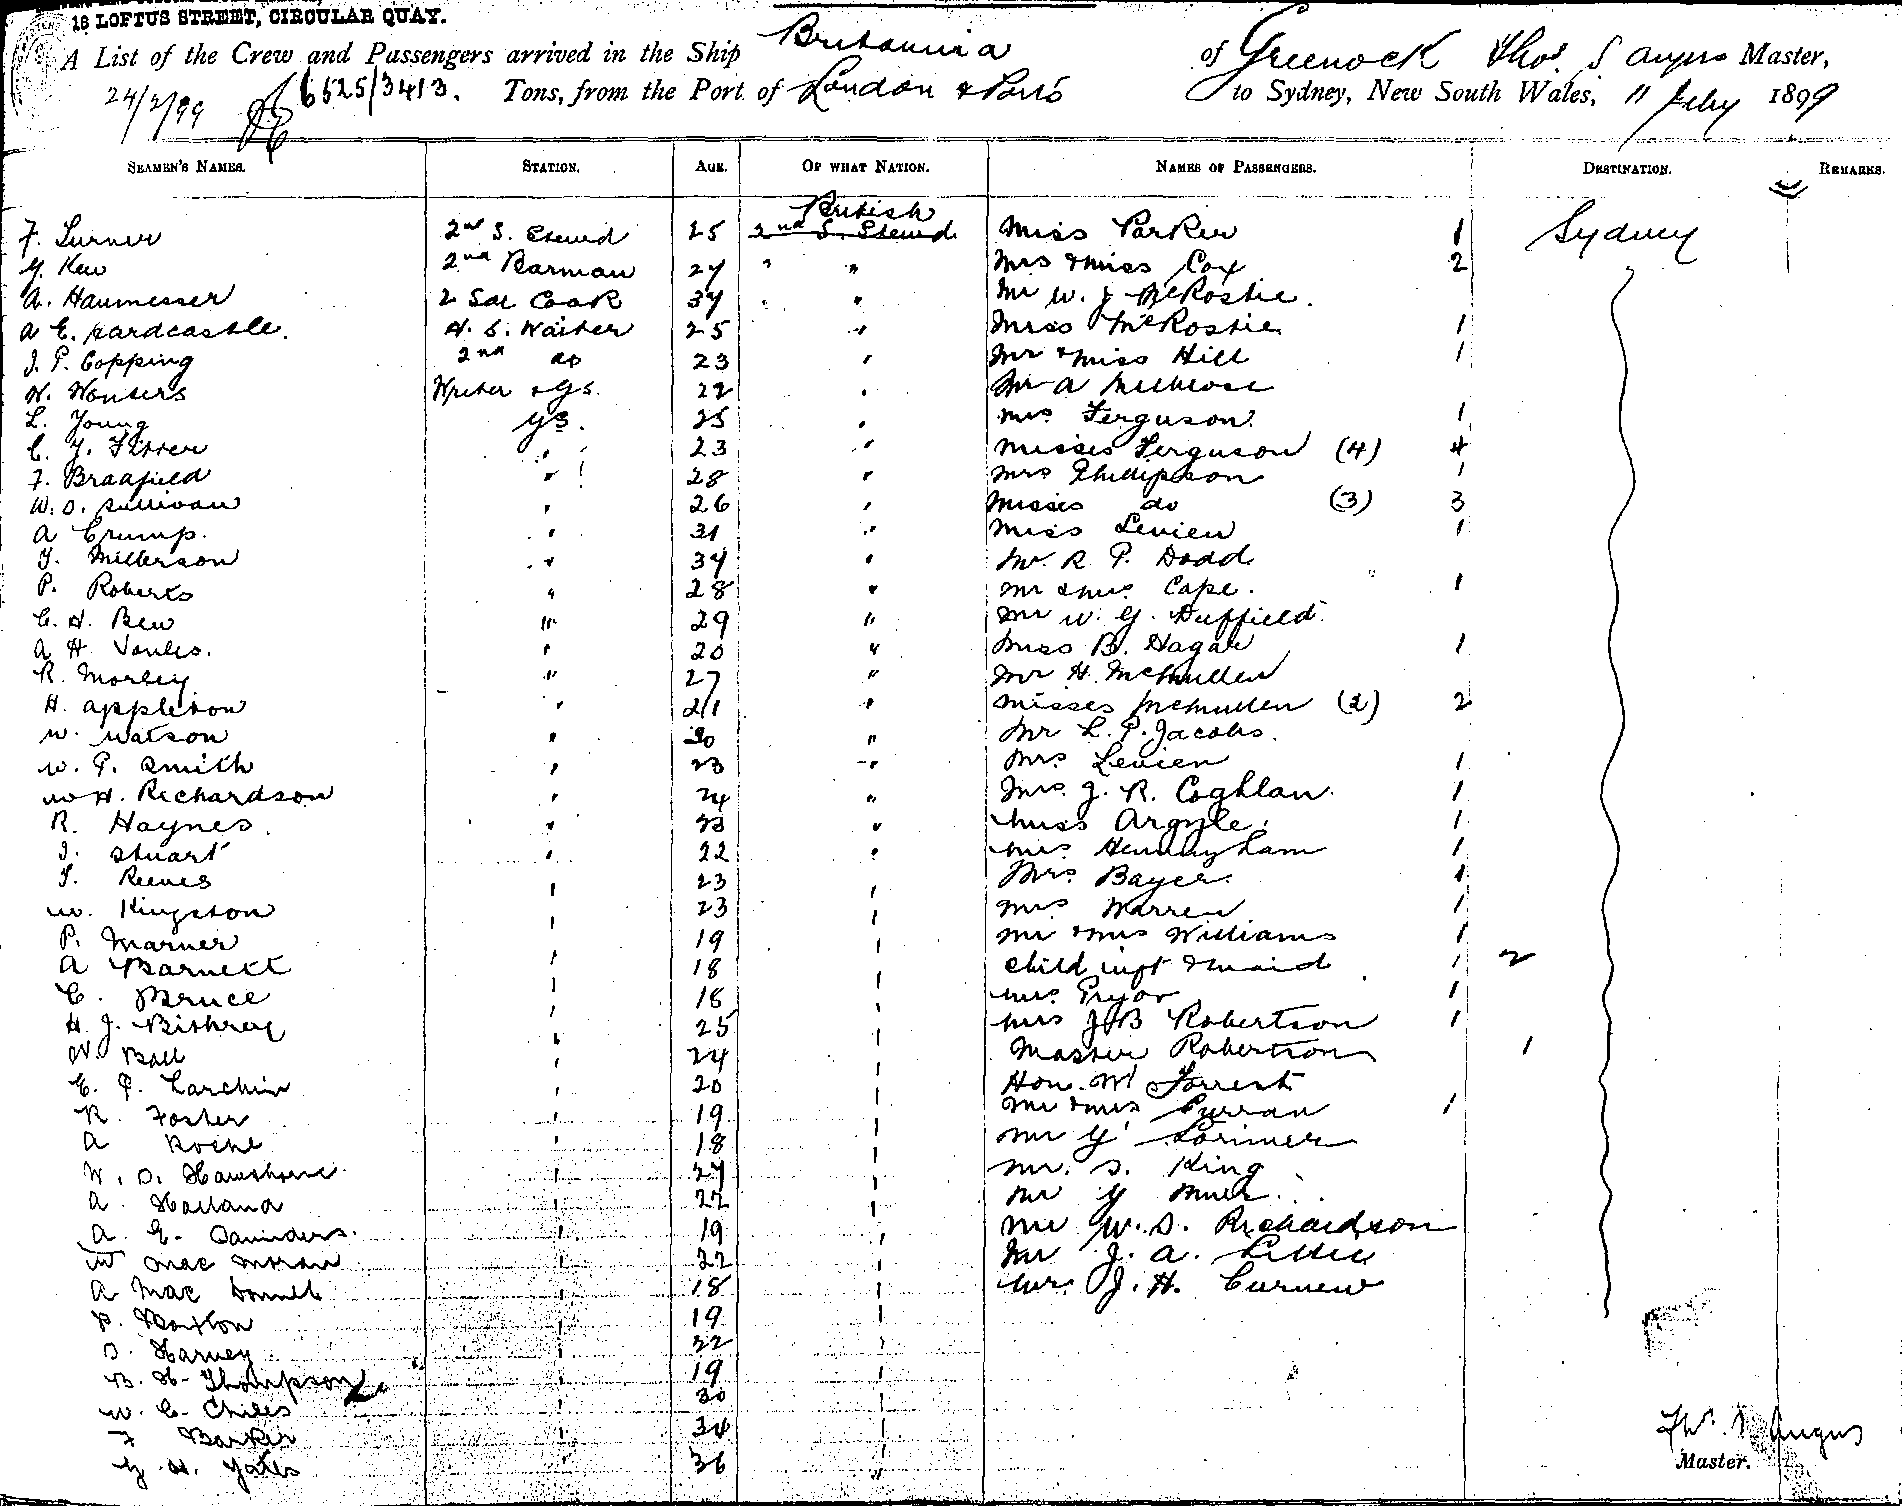 18 LOFTUS STREET, CIRCULAR QUAY.
A List of the Crew and Passengers arrived in the Ship Britannia of Greenock Thos. S Angus Master,
24/2/99 6525/3413. Tons, from the Port of London & Ports to Sydney, New South Wales, 11 Feby 1899
SEAMEN'S NAMES. STATION. AGE. OF WHAT NATION. NAMES OF PASSENGERS. DESTINATION. REMARKS.
British
F. Turner 2nd S. Stewd 25 2nd S. Stewd Miss Parker 1 Sydney
G. Kew 2nd Barman 27 " " Mrs & Miss Cox 2
A. Haumesser 2 Sal Cook 34 " " Mr W. J. McRostie.
A E. Hardcastle. H. S. Waiter 25 " Miss McRostie 1
J. P. Copping 2nd do 23 " Mr & Miss Hill 1
W. Wouters Writer & GS. 22 " Mr A Melrose
L. Young GS. 25 " Mrs Ferguson. 1
C. J. Fitter " 23 " Misses Ferguson (4) 4
F. Bradfield " 28 " Mrs Phillipson 1
W. O. Sullivan " 26 " Misses do (3) 3
A Crump. " 31 " Miss Levien 1
J. Millerson " 34 " Mr. R. P. Dodd
P. Roberts " 28 " Mr & Mrs Cape. 1
C. H. Bew " 29 " Mr W. G. Duffield.
A H. Voules. " 20 " Miss B. Hagar 1
R. Morley " 27 " Mr H. McMullen
H. Appleton " 21 " Misses McMullen (2) 2
W. Watson " 30 " Mr L. P. Jacobs.
W. P. Smith " 23 " Mrs Levien 1
W H. Richardson " 24 " Mrs. J. R. Coghlan. 1
R. Haynes. " 23 " Miss Argyle. 1
J. Stuart " 22 " Mrs Henningham 1
T. Reeves " 23 " Mrs. Bayer. 1
W. Kingston " 23 " Mrs Warren 1
P. Marner " 19 " Mr & Mrs Williams 1
A Barnett " 18 " Child inft & maid 1 2
C. Bruce " 18 " Mrs. Pryor 1
H. J. " 25 " Mrs J B Robertson 1
W. Ball " 24 " Master Robertson 1
E. P. Larchin " 20 " Hon. W Forrest
R. Foster " 19 " Mr & Mrs Curran 1
A Roche " 18 " Mr G Lorimer
W. O. Hawthorne " 27 " Mr. S. King
A. Holland " 22 " Mr G Muir.
A. E. Saunders. " 19 " Mr W. S. Richardson
W Mac Moran " 22 " Mr J. A. Little
A Mac Donnell " 18 " Mr. J. H. Curnew
P. " 19 "
D. Harvey " 22 "
B. H. Thompson " 19 "
W. C. Chiles " 30 "
F Barker " 34 "
G. H. Yates " 36 "
Thos. S Angus
Master.